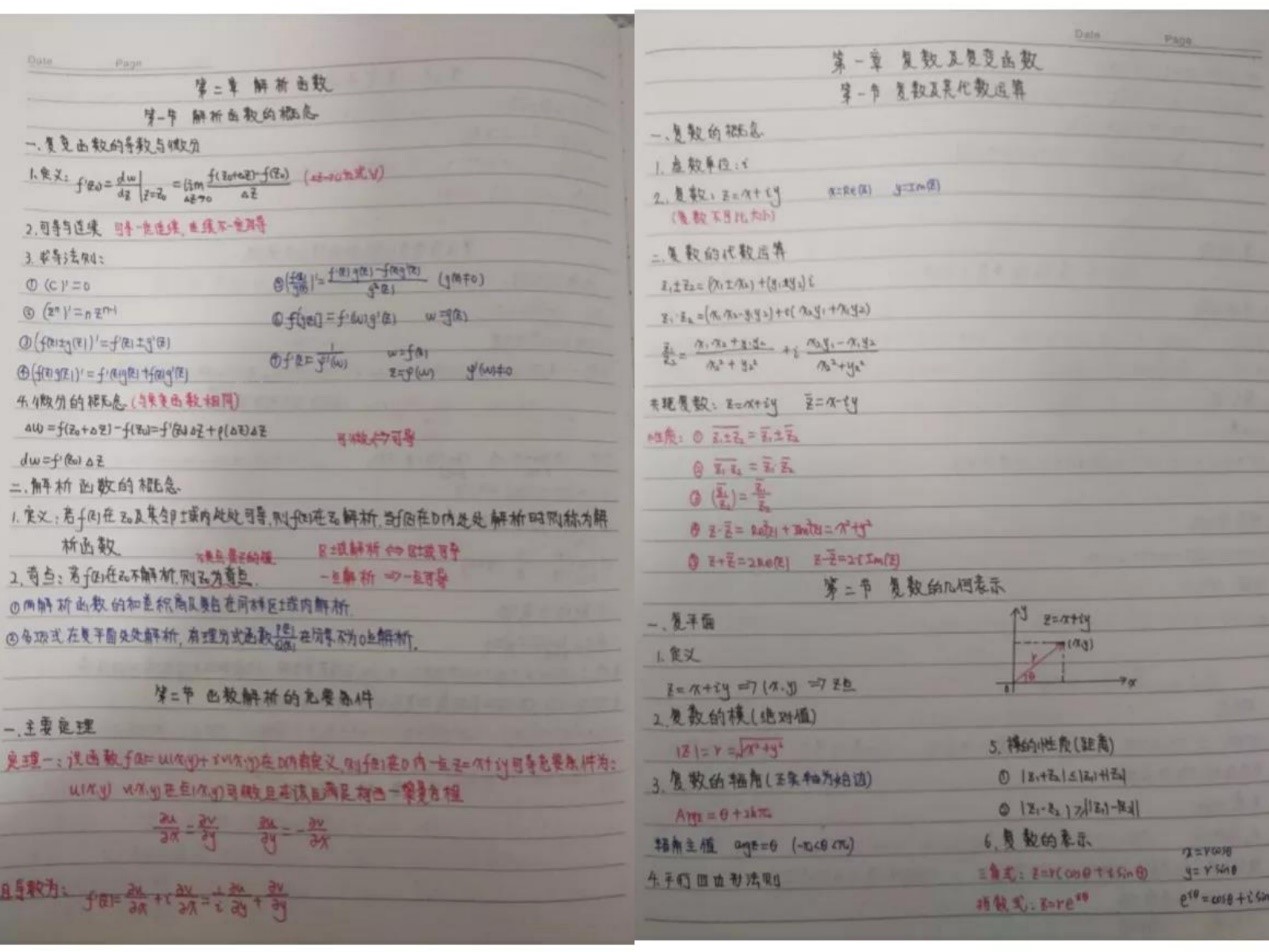 Date Page
第二章 解析函数
第一节 解析函数的概念
一、复变函数的导数与微分
1.定义: f'(z₀)=dw/dz|z=z₀ =lim Δz→0 (f(z₀+Δz)-f(z₀))/Δz
2.可导与连续 可导一定连续,连续不一定可导
3.求导法则:
① (C)'=0
⑤ (f(z)/g(z))'=(f'(z)g(z)-f(z)g'(z))/g²(z) (g(z)≠0)
② (zⁿ)'=nzⁿ⁻¹
⑥ f[g(z)]=f'(w)g'(z) w=g(z)
③ (f(z)±g(z))'=f'(z)±g'(z)
⑦ f'(z)=1/φ'(w) w=f(z) z=φ(w) φ'(w)≠0
④ (f(z)g(z))'=f'(z)g(z)+f(z)g'(z)
4.微分的概念(与实变函数相同)
Δw=f(z₀+Δz)-f(z₀)=f'(z₀)Δz+ρ(Δz)Δz 可微⇔可导
dw=f'(z₀)Δz
二、解析函数的概念
1.定义:若f(z)在z₀及其邻域内处处可导,则f(z)在z₀解析,当f(z)在D内处处解析时则称为解
析函数
区域解析⇔区域可导
2.奇点:若f(z)在z₀不解析,则z₀为奇点. 一点解析⇒一点可导
①两解析函数的和差积商及复合在同样区域内解析.
②多项式在复平面处处解析,有理分式函数P(z)/Q(z)在分母不为0上解析.
第二节 函数解析的充要条件
一、主要定理
定理一:设函数f(z)=u(x,y)+iv(x,y)在D内有定义,则f(z)在D内一点z=x+iy可导充要条件为:
u(x,y) v(x,y)在点(x,y)可微且在该点满足柯西一黎曼方程
∂u/∂x=∂v/∂y ∂u/∂y=-∂v/∂x
且导数为: f'(z)=∂u/∂x+i∂v/∂x=1/i ∂u/∂y+∂v/∂y
Date Page
第一章 复数及复变函数
第一节 复数及其代数运算
一、复数的概念
1.虚数单位:i
2.复数: z=x+iy x=Re(z) y=Im(z)
(复数不可比大小)
二、复数的代数运算
z₁±z₂=(x₁±x₂)+(y₁±y₂)i
z₁·z₂=(x₁x₂-y₁y₂)+i(x₂y₁+x₁y₂)
z₁/z₂=(x₁x₂+y₁y₂)/(x₂²+y₂²)+i(x₂y₁-x₁y₂)/(x₂²+y₂²)
共轭复数: z=x+iy z̅=x-iy
性质: ① \overline{z₁±z₂}=z̅₁±z̅₂
② \overline{z₁z₂}=z̅₁·z̅₂
③ \overline{(z₁/z₂)}=z̅₁/z̅₂
④ z·z̅=Re²(z)+Im²(z)=x²+y²
⑤ z+z̅=2Re(z) z-z̅=2iIm(z)
第二节 复数的几何表示
一、复平面
y z=x+iy
(x,y)
r
θ
0 x
1.定义
z=x+iy⇒(x,y)⇒z点
2.复数的模(绝对值)
|z|=r=√(x²+y²)
3.复数的辐角(以实轴为始边)
Argz=θ+2kπ
辐角主值 argz=θ (-π<θ≤π)
4.平行四边形法则
5.模的性质(距离)
① |z₁+z₂|≤|z₁|+|z₂|
② |z₁-z₂|≥||z₁|-|z₂||
6.复数的表示
x=rcosθ
三角式: z=r(cosθ+isinθ) y=rsinθ
指数式: z=re^{iθ} e^{iθ}=cosθ+isin